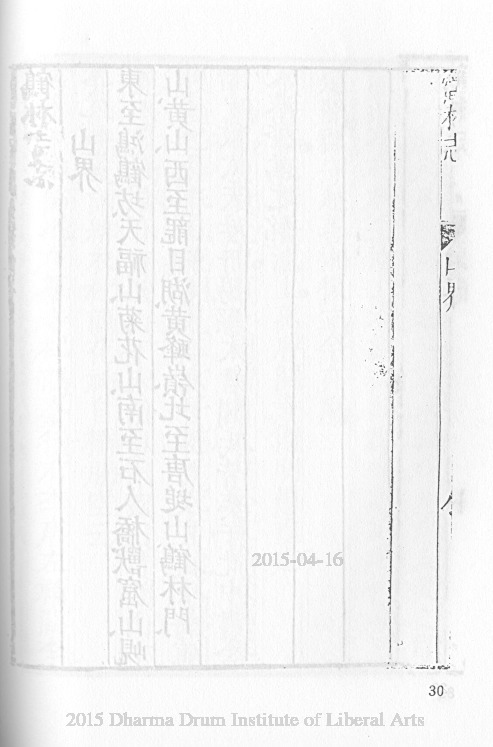 山界
鶴林寺志
山界
東至鴻鶴坊、天福山、菊花山、南至石人橋、獸窟山、峴
山、黃山、西至龍目湖、黃峰嶺、北至唐塠山鶴林門、
2015-04-16
30
2015 Dharma Drum Institute of Liberal Arts